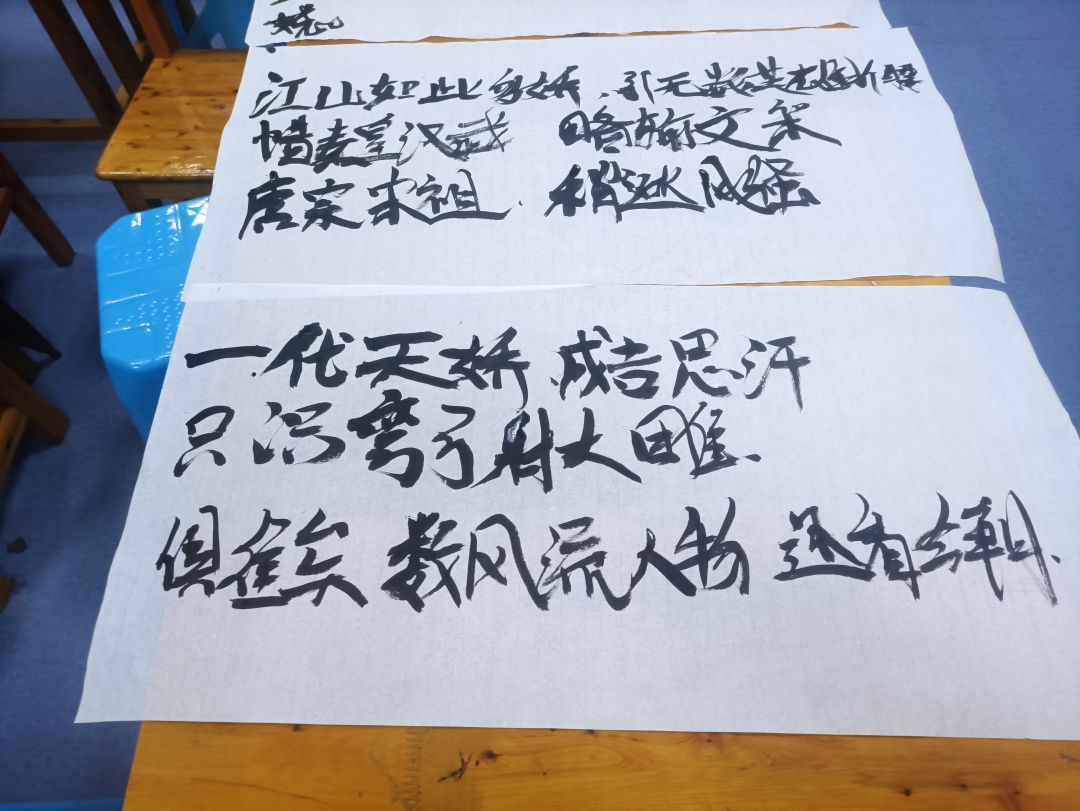 娆
江山如此多娇、引无数英雄折腰
惜秦皇汉武 略输文采
唐宗宋祖、稍逊风骚
一代天娇、成吉思汗
只识弯弓射大雕、
俱往矣 数风流人物 还看今朝、